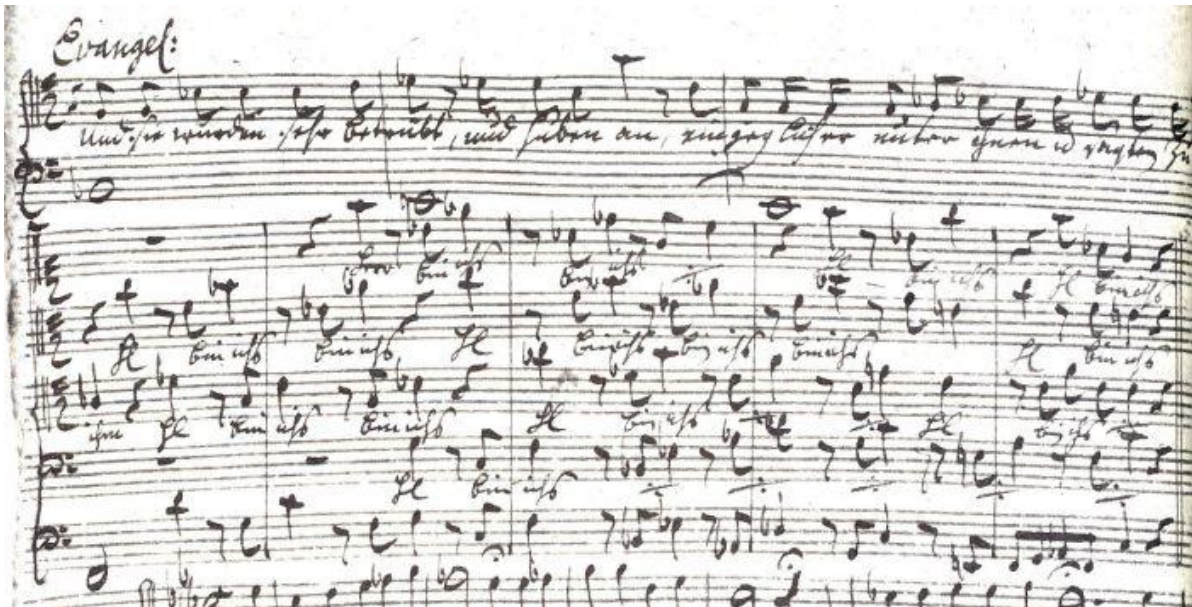 Evangel:
Und sie wurden sehr betrübt, und huben an, ein jeglicher unter ihnen u sagten zu
Herr bin ichs bin ichs bin ichs H bin ichs
H bin ichs bin ichs H bin ichs bin ichs bin ichs H bin ichs
ihm H bin ichs bin ichs H bin ichs H bin ichs
H bin ichs